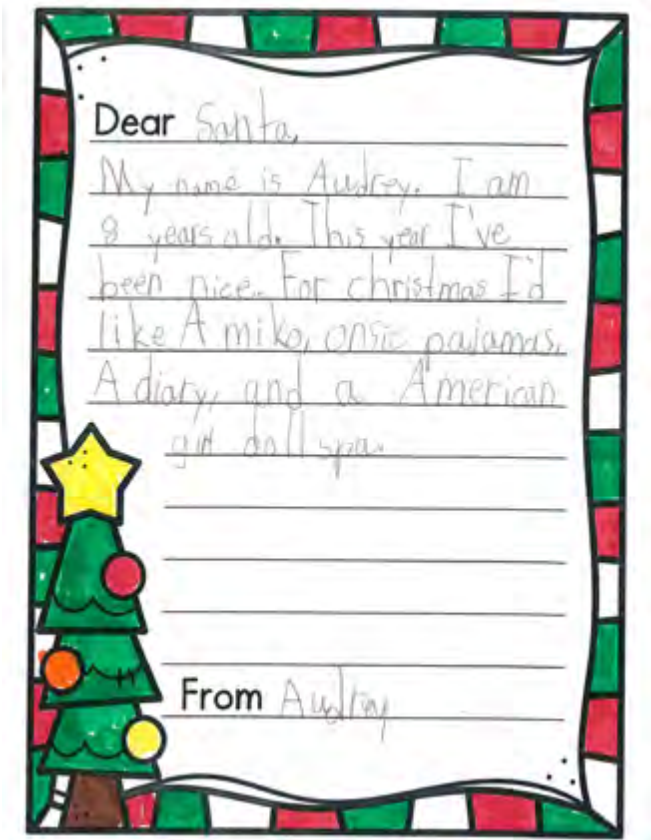 Dear Santa,
My name is Audrey. I am
8 years old. This year I've
been nice. For christmas I'd
like A miko, onsie pajamas,
A diary, and a American
girl doll spa.
From Audrey